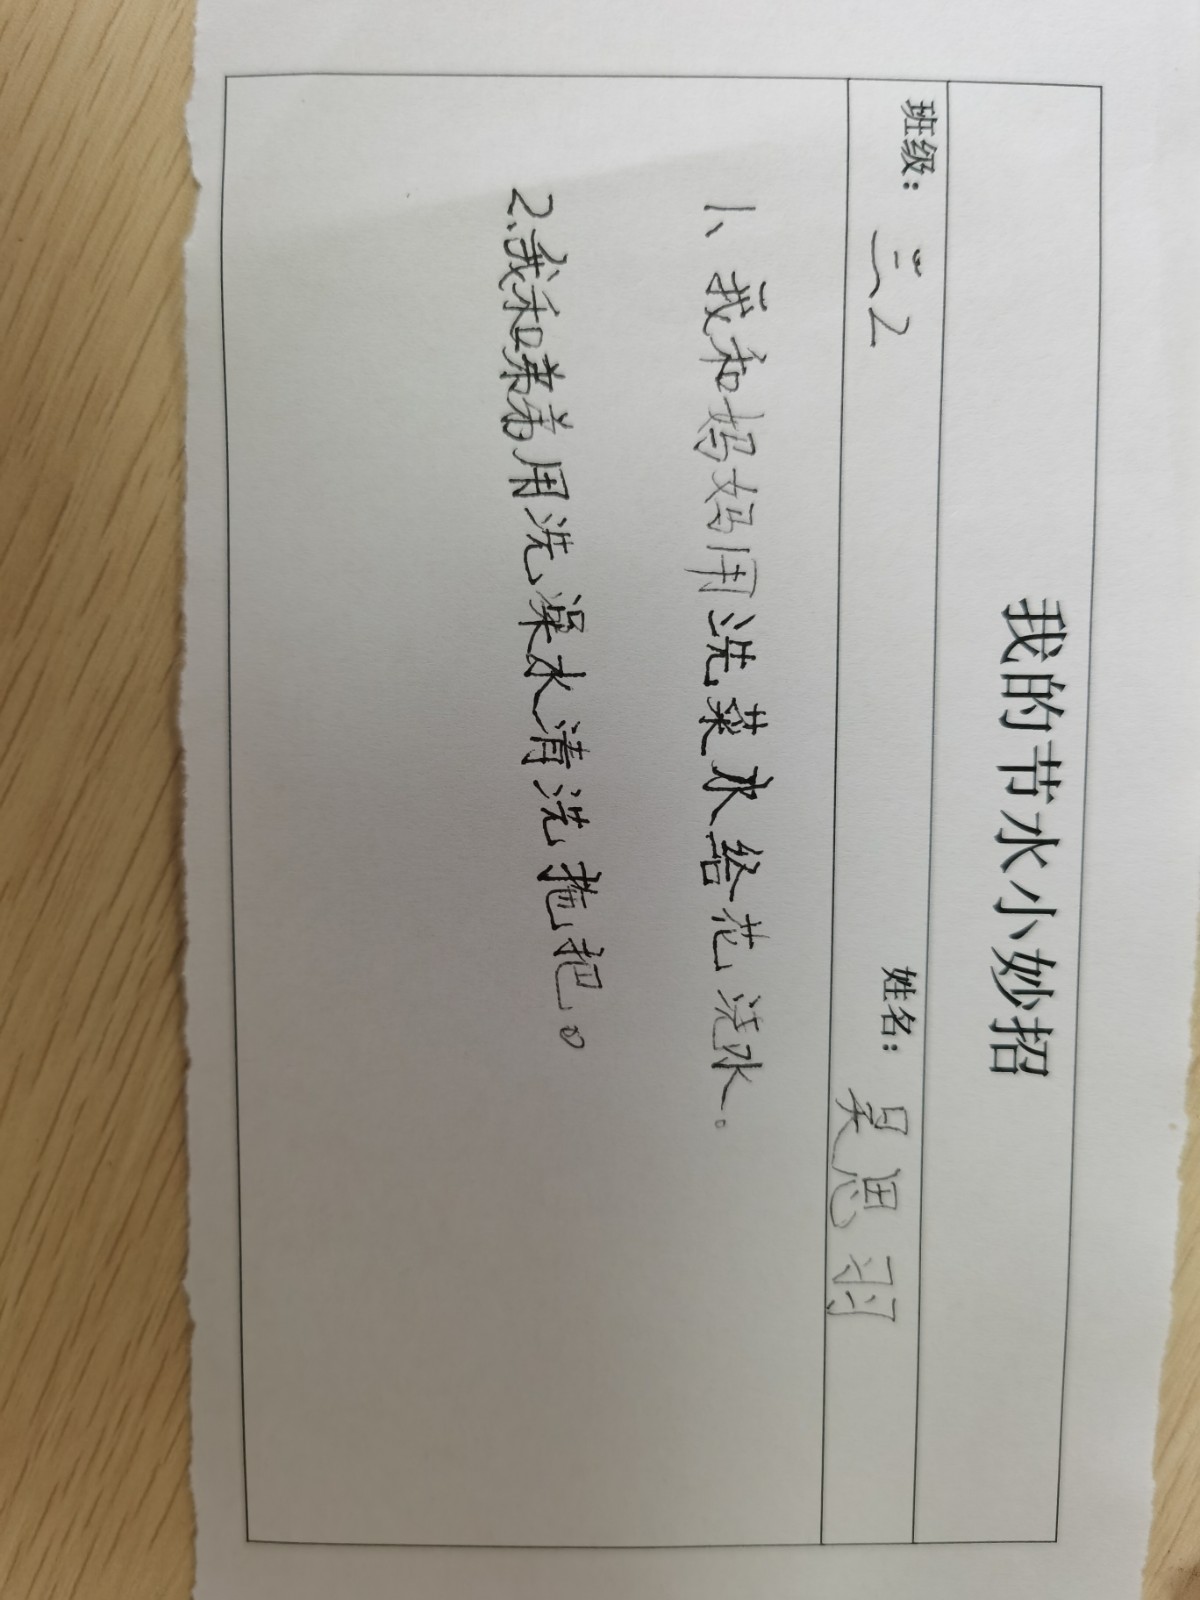 我的节水小妙招
班级：三2 姓名：吴思羽
1、我和妈妈用洗菜水给花浇水。
2、我和弟弟用洗澡水清洗拖把。